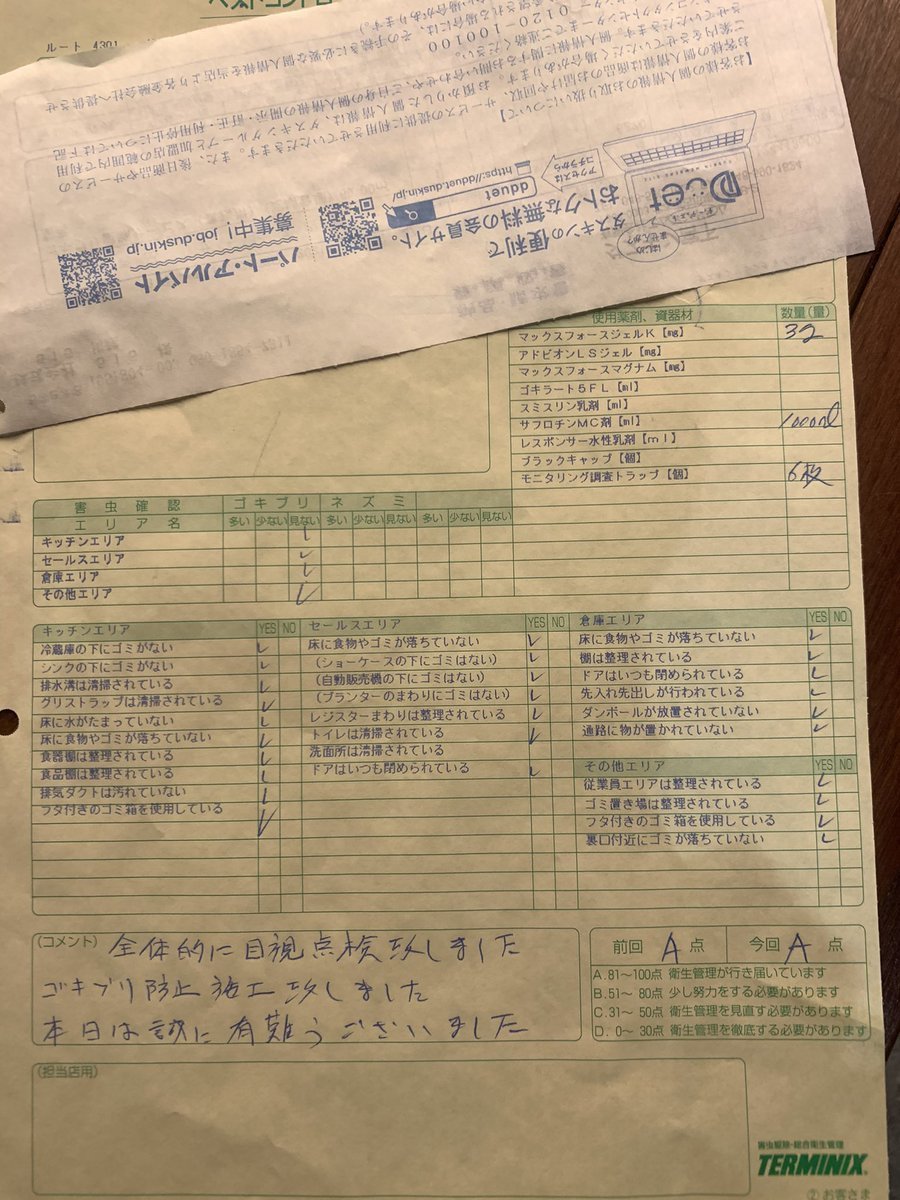 ルート 4301
使用薬剤、資器材 数量(量)
マックスフォースジェルK【mg】 32
アドビオンLSジェル【mg】
マックスフォースマグナム【mg】
ゴキラート5FL【ml】
スミスリン乳剤【ml】
サフロチンMC剤【ml】 1000ml
レスポンサー水性乳剤【ml】
ブラックキャップ【個】
モニタリング調査トラップ【個】 6枚
害虫確認 ゴキブリ ネズミ
エリア名 多い 少ない 見ない 多い 少ない 見ない 多い 少ない 見ない
キッチンエリア
セールスエリア
倉庫エリア
その他エリア
キッチンエリア YES NO
冷蔵庫の下にゴミがない
シンクの下にゴミがない
排水溝は清掃されている
グリストラップは清掃されている
床に水がたまっていない
床に食物やゴミが落ちていない
食器棚は整理されている
食品棚は整理されている
排気ダクトは汚れていない
フタ付きのゴミ箱を使用している
セールスエリア YES NO
床に食物やゴミが落ちていない
(ショーケースの下にゴミはない)
(自動販売機の下にゴミはない)
(プランターのまわりにゴミはない)
レジスターまわりは整理されている
トイレは清掃されている
洗面所は清掃されている
ドアはいつも閉められている
倉庫エリア YES NO
床に食物やゴミが落ちていない
棚は整理されている
ドアはいつも閉められている
先入れ先出しが行われている
ダンボールが放置されていない
通路に物が置かれていない
その他エリア YES NO
従業員エリアは整理されている
ゴミ置き場は整理されている
フタ付きのゴミ箱を使用している
裏口付近にゴミが落ちていない
(コメント) 全体的に目視点検致しました
ゴキブリ防止施工致しました
本日は誠に有難うございました
前回 A 点 今回 A 点
A.81〜100点 衛生管理が行き届いています
B.51〜 80点 少し努力をする必要があります
C.31〜 50点 衛生管理を見直す必要があります
D. 0〜 30点 衛生管理を徹底する必要があります
(担当店用)
害虫駆除・総合衛生管理
TERMINIX
②お客さま
はじめませんか?
Dduet
ディーデュエット
ダスキンの便利で
おトクな無料の会員サイト。
アクセスはコチラから
dduet
https://dduet.duskin.jp/
パート・アルバイト
募集中! job.duskin.jp
0120-100100